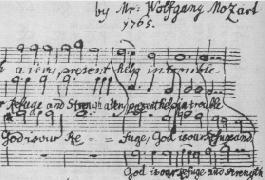 by Mr: Wolfgang Mozart
1765.
a very present help in trouble
Refuge and Strength a very present help in trouble
God is our Re - - fuge, God is our Refuge and
God is our refuge and strength